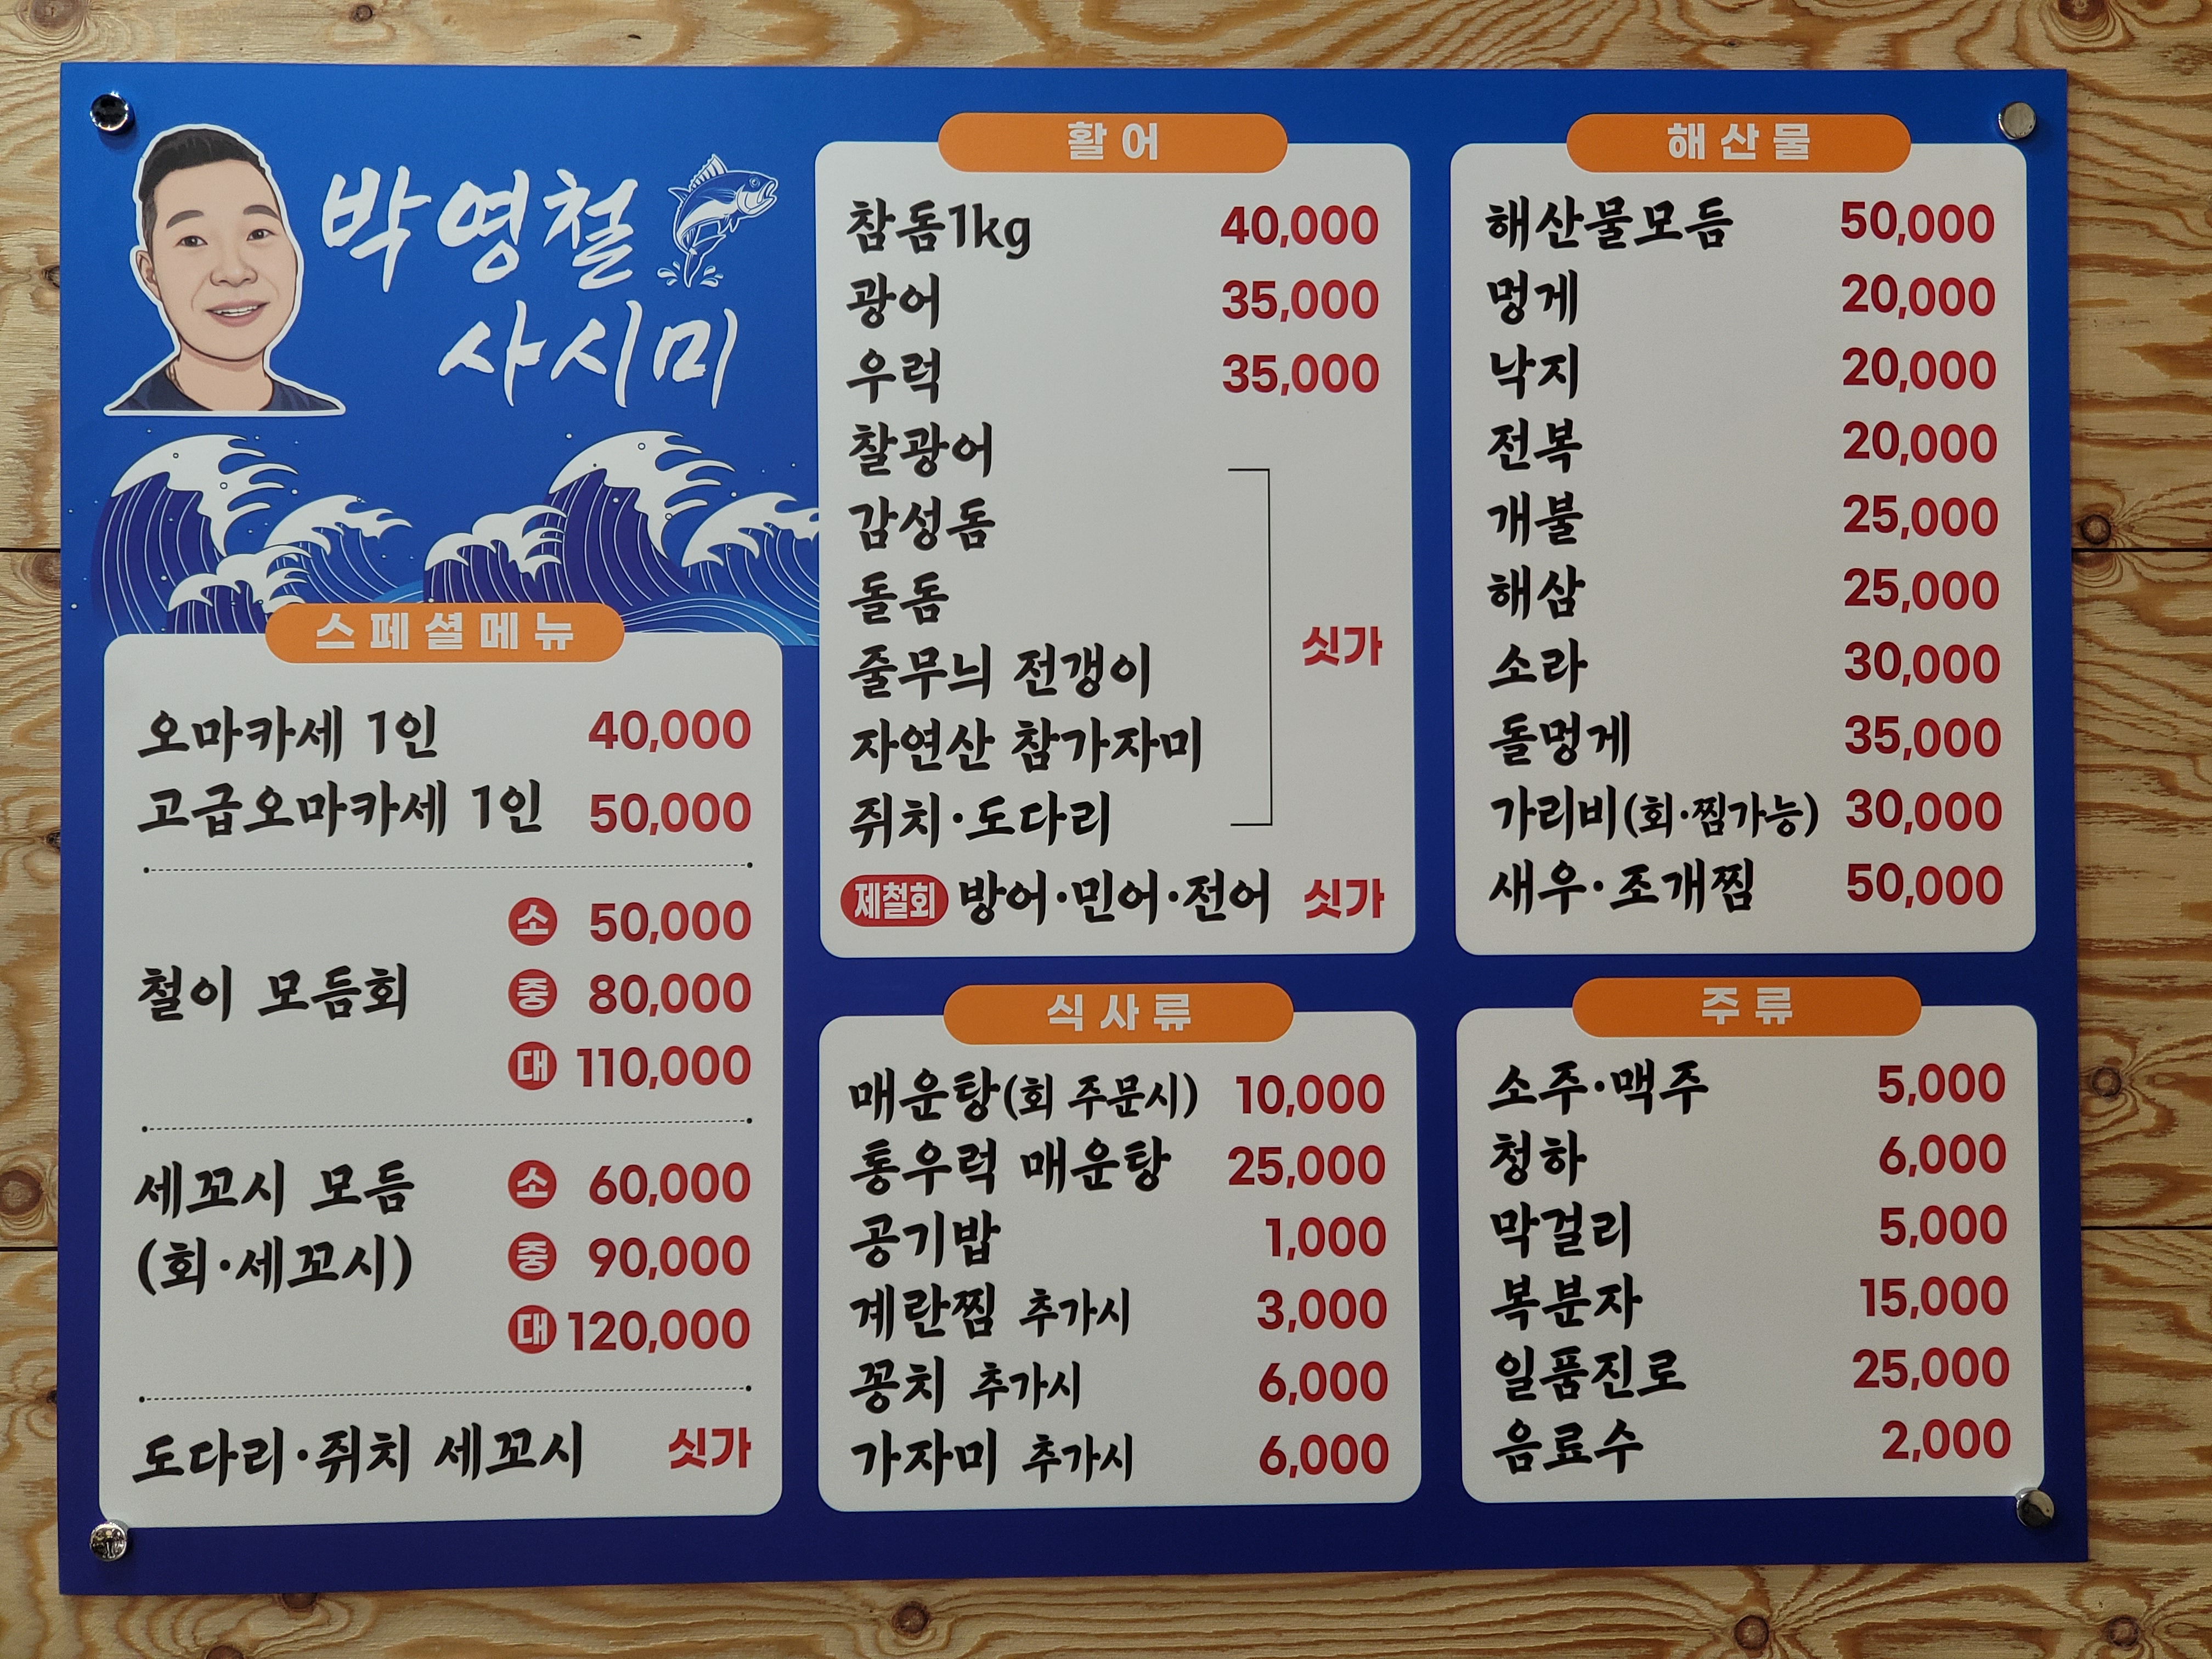 박영철
사시미
스페셜메뉴
오마카세 1인 40,000
고급오마카세 1인 50,000
소 50,000
철이 모듬회 중 80,000
대 110,000
세꼬시 모듬 소 60,000
(회·세꼬시) 중 90,000
대 120,000
도다리·쥐치 세꼬시 싯가
활어
참돔1kg 40,000
광어 35,000
우럭 35,000
찰광어
감성돔
돌돔
줄무늬 전갱이 싯가
자연산 참가자미
쥐치·도다리
제철회 방어·민어·전어 싯가
식사류
매운탕(회 주문시) 10,000
통우럭 매운탕 25,000
공기밥 1,000
계란찜 추가시 3,000
꽁치 추가시 6,000
가자미 추가시 6,000
해산물
해산물모듬 50,000
멍게 20,000
낙지 20,000
전복 20,000
개불 25,000
해삼 25,000
소라 30,000
돌멍게 35,000
가리비(회·찜가능) 30,000
새우·조개찜 50,000
주류
소주·맥주 5,000
청하 6,000
막걸리 5,000
복분자 15,000
일품진로 25,000
음료수 2,000